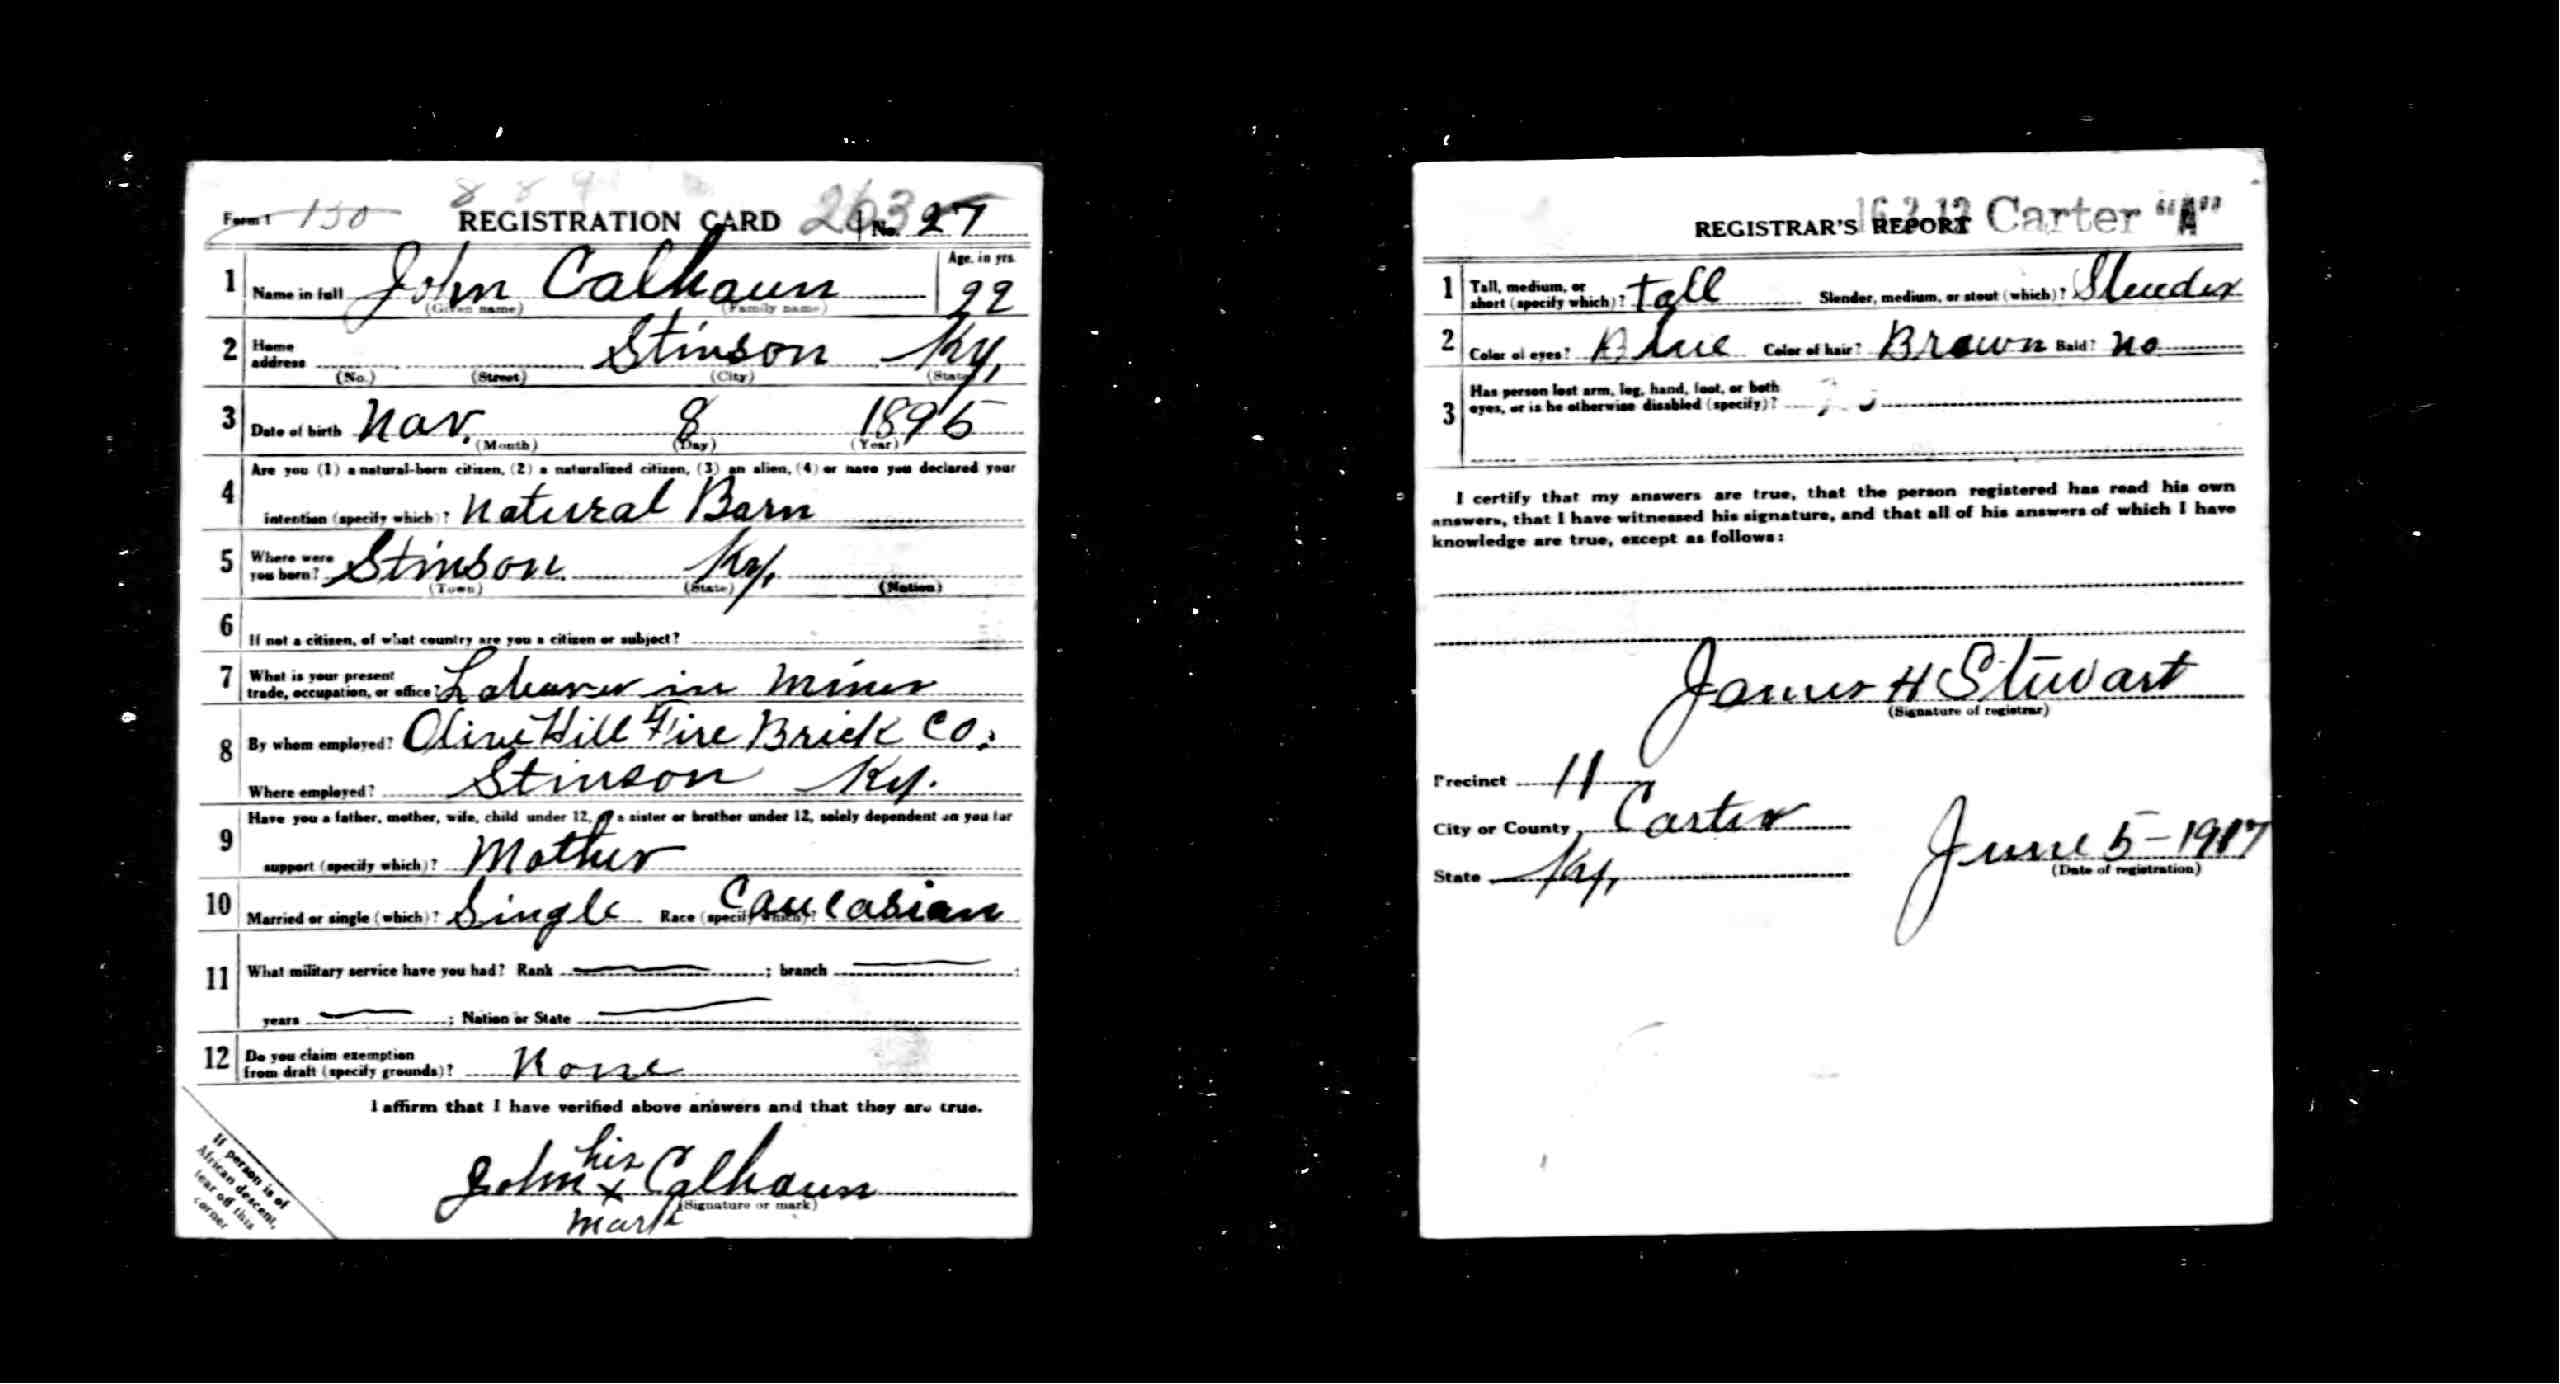 Form 1 130 REGISTRATION CARD 263 No. 27
1 Name in full John Calhoun Age, in yrs. 22
(Given name) (Family name)
2 Home address Stinson Ky,
(No.) (Street) (City) (State)
3 Date of birth Nov. 8 1895
(Month) (Day) (Year)
Are you (1) a natural-born citizen, (2) a naturalized citizen, (3) an alien, (4) or have you declared your
4 intention (specify which)? Natural Born
5 Where were you born? Stinson Ky,
(Town) (State) (Nation)
6 If not a citizen, of what country are you a citizen or subject?
7 What is your present trade, occupation, or office? Laborer in Mines
8 By whom employed? Olive Hill Fire Brick Co.
Where employed? Stinson Ky.
Have you a father, mother, wife, child under 12, or a sister or brother under 12, solely dependent on you for
9 support (specify which)? Mother
10 Married or single (which)? Single Race (specify which)? Caucasian
11 What military service have you had? Rank ; branch ;
years ; Nation or State
12 Do you claim exemption from draft (specify grounds)? None
I affirm that I have verified above answers and that they are true.
his
John x Calhoun
(Signature or mark)
mark
If person is of
African descent,
tear off this
corner
REGISTRAR'S REPORT Carter "A"
1 Tall, medium, or short (specify which)? Tall Slender, medium, or stout (which)? Slender
2 Color of eyes? Blue Color of hair? Brown Bald? No
3 Has person lost arm, leg, hand, foot, or both
eyes, or is he otherwise disabled (specify)?
I certify that my answers are true, that the person registered has read his own
answers, that I have witnessed his signature, and that all of his answers of which I have
knowledge are true, except as follows:
James H Stewart
(Signature of registrar)
Precinct 11
City or County Carter
State Ky,
June 5-1917
(Date of registration)